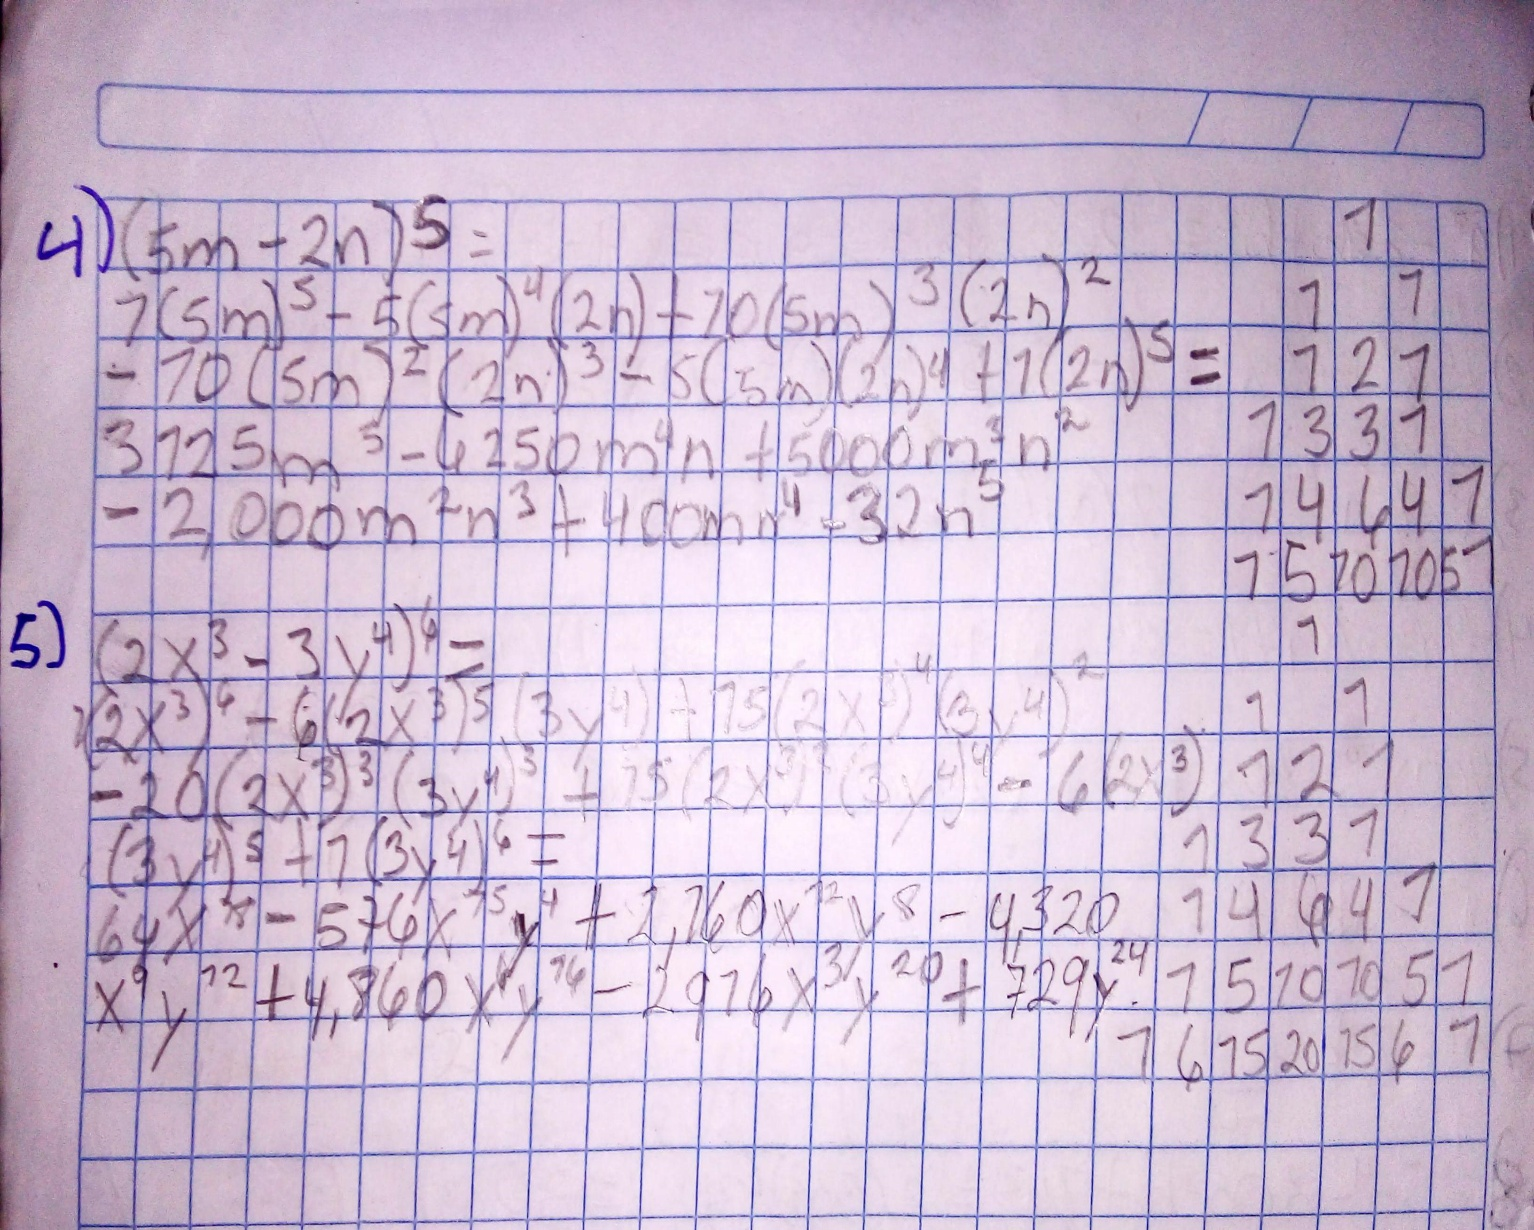 4) (5m - 2n)^5 =
1(5m)^5 - 5(5m)^4(2n) + 10(5m)^3(2n)^2
- 10(5m)^2(2n)^3 - 5(5m)(2n)^4 + 1(2n)^5 =
3125m^5 - 6250m^4n + 5000m^3n^2
- 2,000m^2n^3 + 400mn^4 - 32n^5
1
1 1
1 2 1
1 3 3 1
1 4 6 4 1
1 5 10 10 5 1
5) (2x^3 - 3y^4)^6 =
1(2x^3)^6 - 6(2x^3)^5(3y^4) + 15(2x^3)^4(3y^4)^2
- 20(2x^3)^3(3y^4)^3 + 15(2x^3)^2(3y^4)^4 - 6(2x^3)
(3y^4)^5 + 1(3y^4)^6 =
64x^18 - 576x^15y^4 + 2,160x^12y^8 - 4,320
x^9y^12 + 4,860x^6y^16 - 2916x^3y^20 + 729y^24.
1
1 1
1 2 1
1 3 3 1
1 4 6 4 1
1 5 10 10 5 1
1 6 15 20 15 6 1